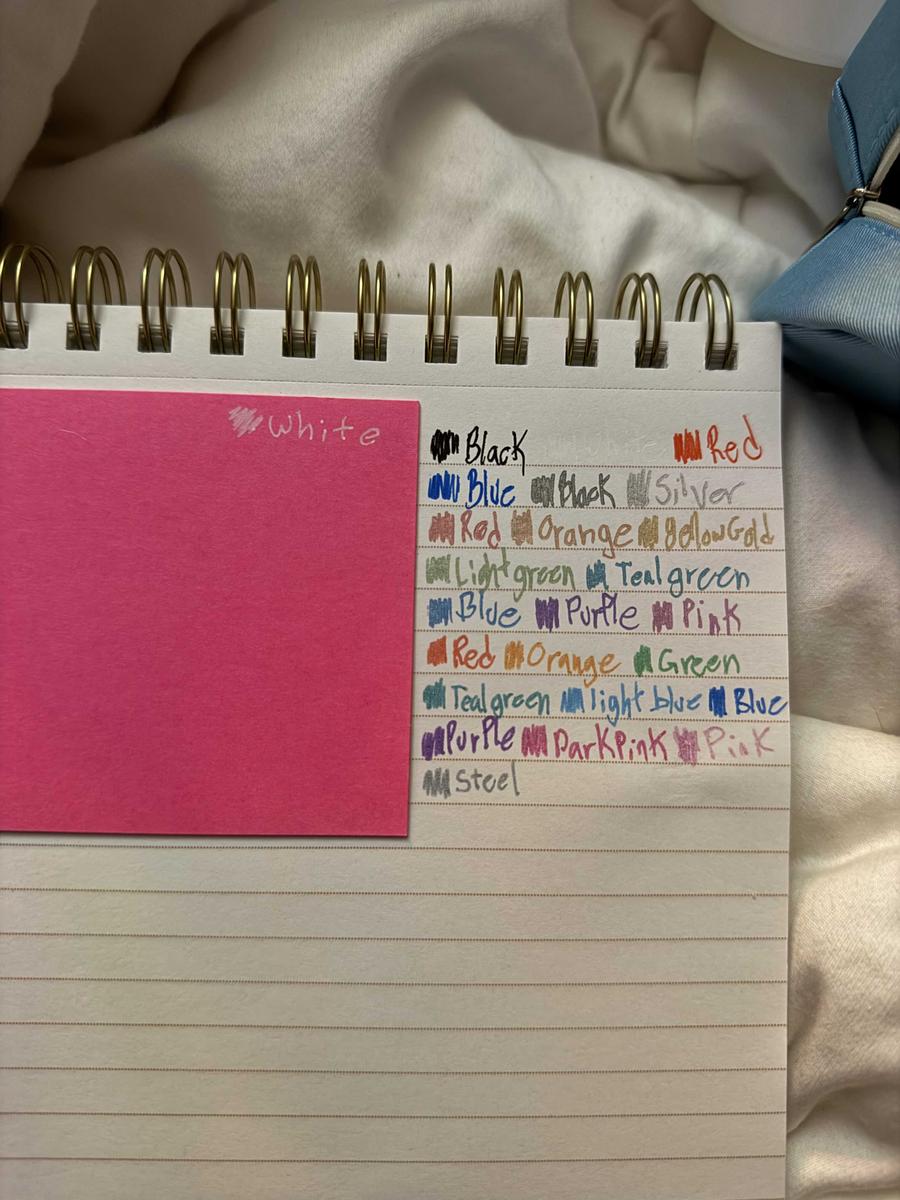 White
Black White Red
Blue Black Silver
Red Orange YellowGold
Lightgreen Teal green
Blue Purple Pink
Red Orange Green
Teal green light blue Blue
Purple DarkPink Pink
Steel